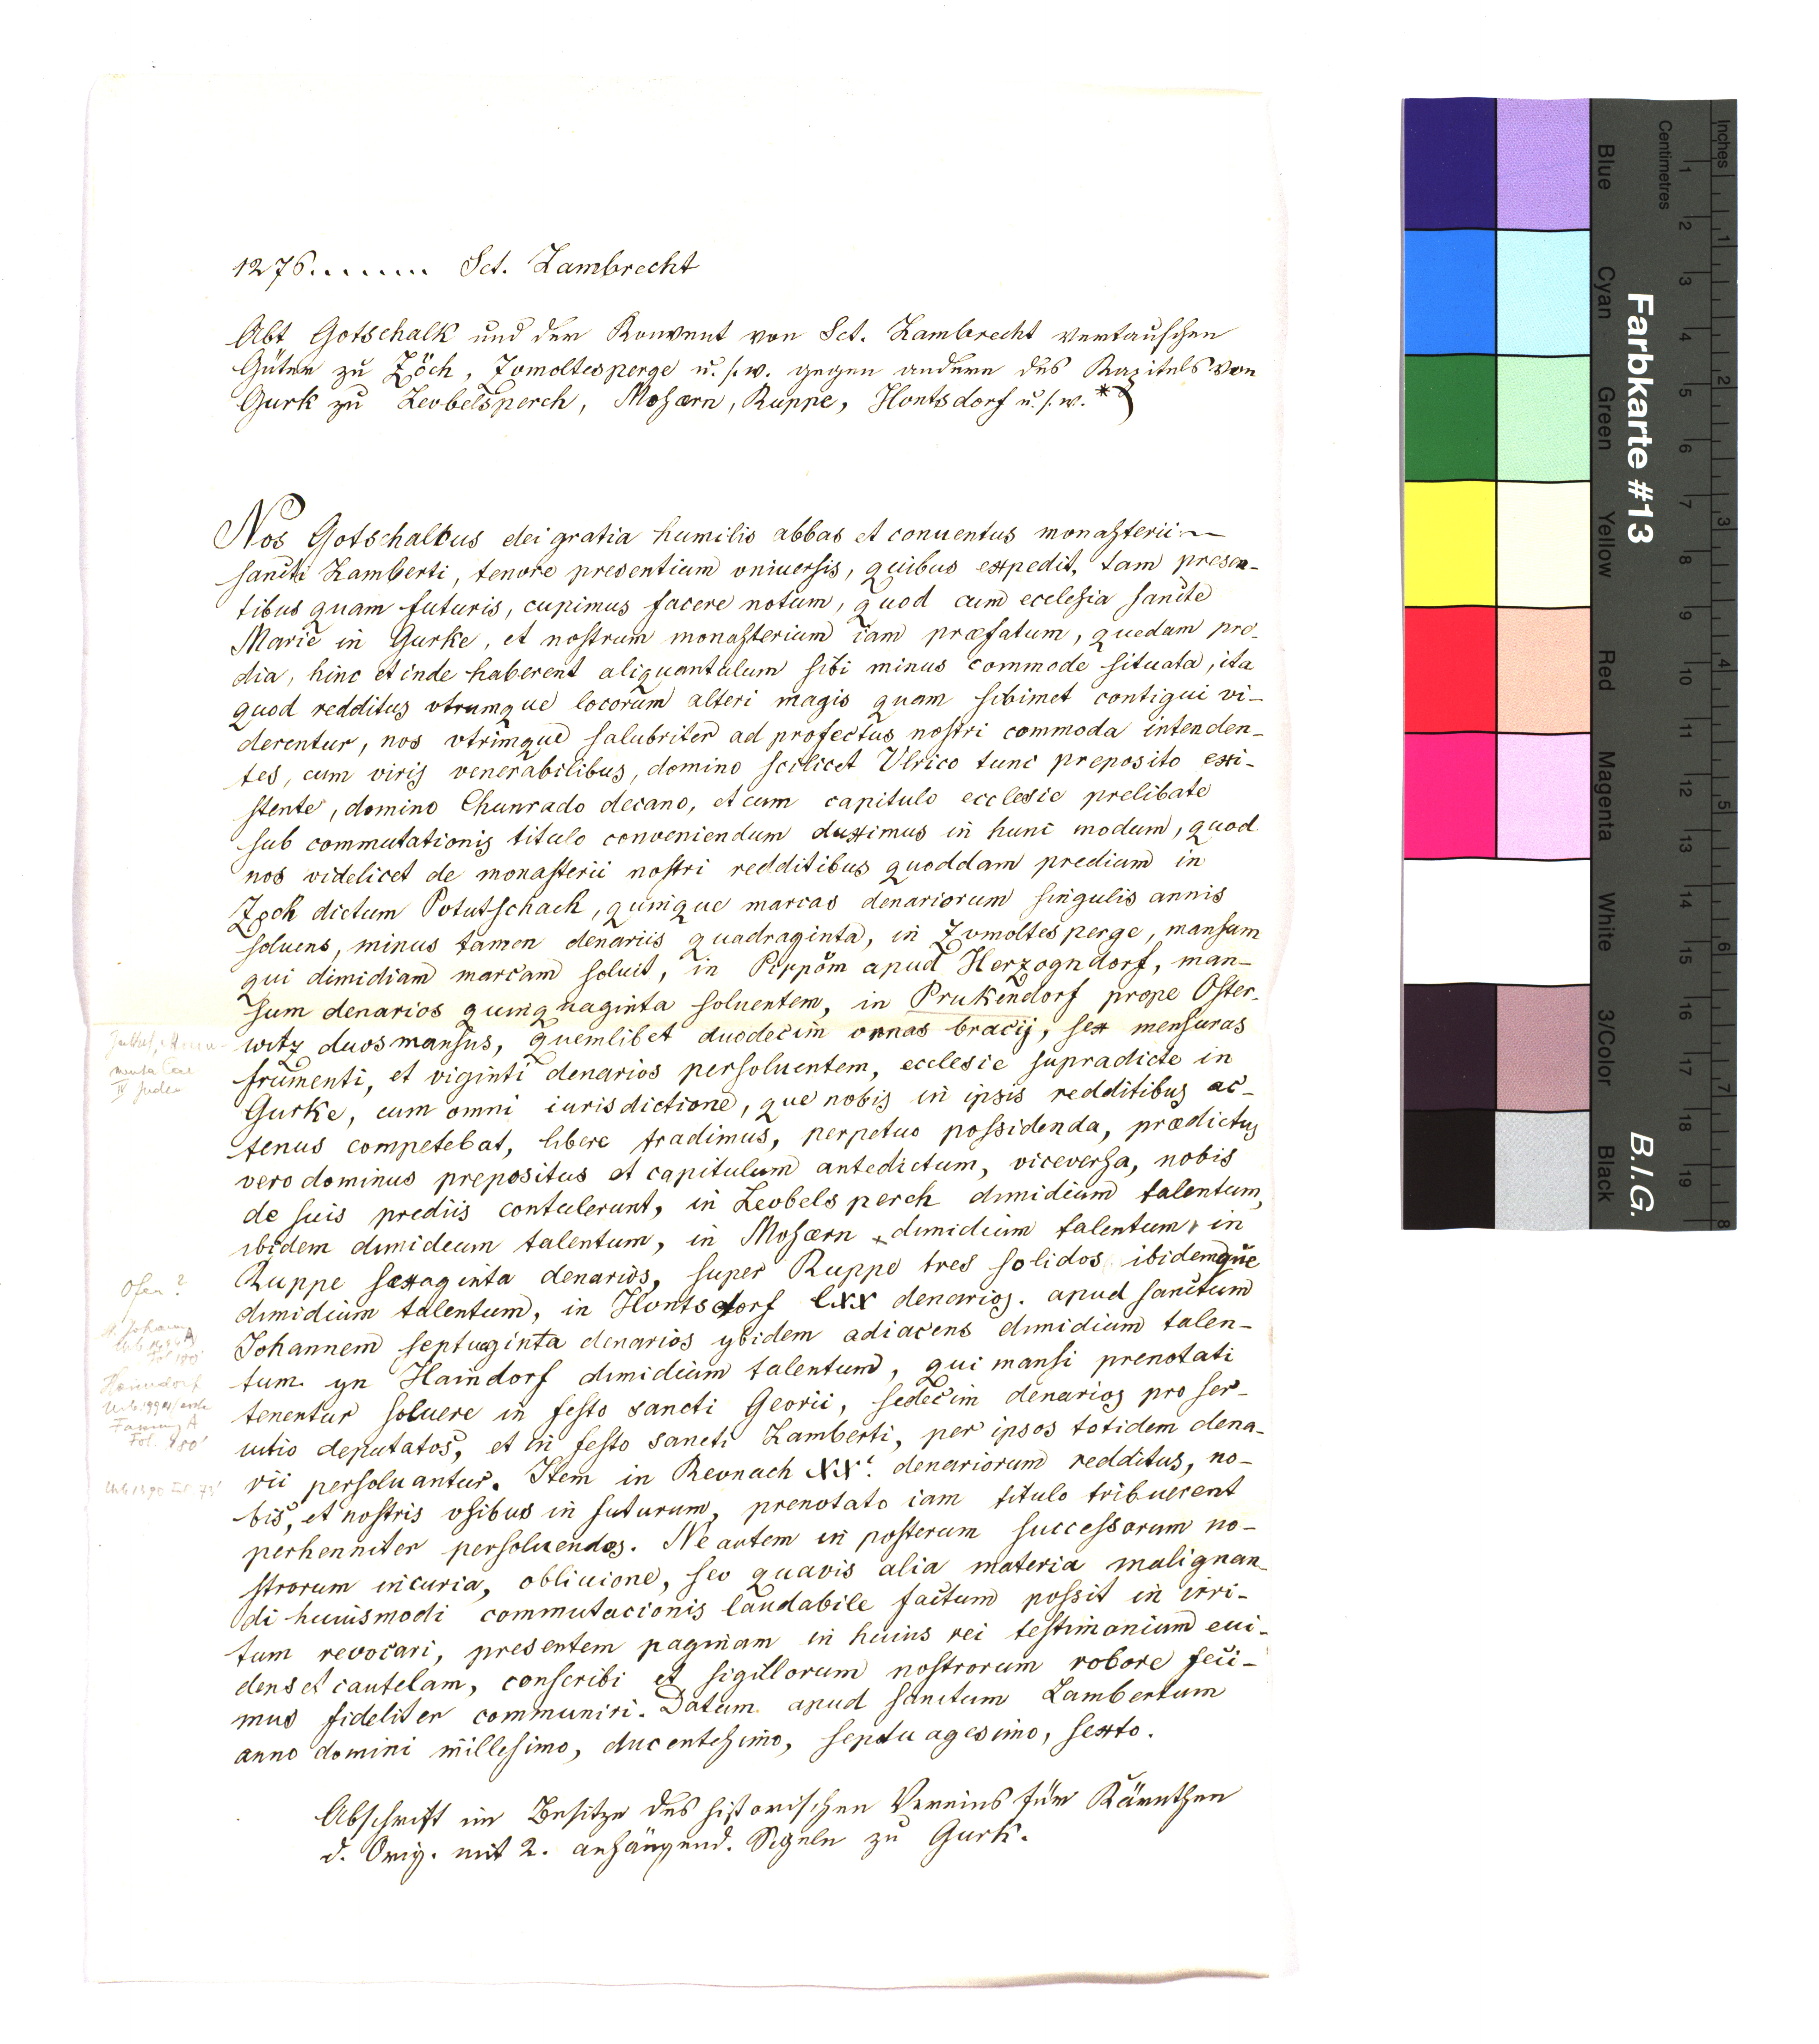 1276....... Sct. Lambrecht
Abt Gotschalk und der Konvent von Sct. Lambrecht vertauschen
Güter zu Zöch, Zvmoltesperge u. s. w. gegen andere des Kapitels von
Gurk zu Levbelsperch, Mosærn, Ruppe, Hontsdorf u. s. w. *)
Nos Gotschalcus dei gratia humilis abbas et conuentus monasterii
sancti Lamberti, tenore presentium vniuersis, quibus expedit, tam presen-
tibus quam futuris, cupimus facere notum, quod cum ecclesia sancte
Marie in Gurke, et nostrum monasterium iam præfatum, quedam pre-
dia, hinc et inde haberent aliquantulum sibi minus commode situata, ita
quod redditus vtrumque locorum alteri magis quam sibimet contigui vi-
derentur, nos vtrimque salubriter ad profectus nostri commoda intenden-
tes, cum viris venerabilibus, domino scilicet Vlrico tunc preposito exi-
stente, domino Chunrado decano, et cum capitulo ecclesie prelibate
sub commutationis titulo conveniendum duximus in hunc modum, quod
nos videlicet de monasterii nostri redditibus quoddam predium in
Zoch dictum Potutschach, quinque marcas denariorum singulis annis
soluens, minus tamen denariis quadraginta, in Zvmoltesperge, mansum
qui dimidiam marcam soluit, in Pippöm apud Herzogndorf, man-
sum denarios quinquaginta soluentem, in Prukendorf prope Oster-
witz duos mansus, quemlibet duodecim vrnas bracij, sex mensuras
frumenti, et viginti denarios persoluentem, ecclesie supradicte in
Gurke, cum omni iurisdictione, que nobis in ipsis redditibus ac-
tenus competebat, libere tradimus, perpetuo possidenda, prædictus
vero dominus prepositus et capitulum antedictum, viceversa, nobis
de suis prediis contulerunt, in Levbelsperch dimidium talentum,
ibidem dimideum talentum, in Mosærn dimidium talentum, in
Ruppe sexaginta denarios, super Ruppe tres solidos ibidemque
dimidium talentum, in Hontsdorf lxx denarios. apud sanctum
Johannem septuaginta denarios ybidem adiacens dimidium talen-
tum. yn Haindorf dimidium talentum, qui mansi prenotati
tenentur soluere in festo sancti Georii, sedecim denarios pro ser-
uitio deputatos, et in festo sancti Lamberti, per ipsos totidem dena-
rii persoluantur. Item in Revnach XX. denariorum redditus, no-
bis, et nostris vsibus in futurum, prenotato iam titulo tribuerent
perhenniter persoluendos. Ne autem in posterum successorum no-
strorum incuria, obliuione, sev quavis alia materia malignan-
di huiusmodi commutacionis laudabile factum possit in irri-
tum revocari, presentem paginam in huius rei testimonium eui-
dens et cautelam, conscribi et sigillorum nostrorum robore feci-
mus fideliter communiri. Datum. apud sanctum Lambertum
anno domini millesimo, ducentesimo, septuagesimo, sexto.
Ofen?
Haindorf
Abschrift im Besitze des historischen Vereins für Kärnthen
d. Orig. mit 2. anhängend. Sigeln zu Gurk.
Inches
Centimetres
1 2 3 4 5 6 7 8 9 10 11 12 13 14 15 16 17 18 19
1 2 3 4 5 6 7 8
Farbkarte #13
B.I.G.
Blue
Cyan
Green
Yellow
Red
Magenta
White
3/Color
Black